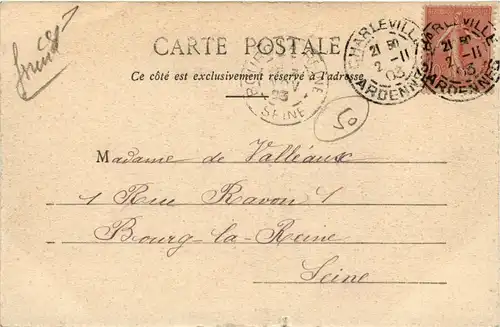 CARTE POSTALE
Ce côté est exclusivement réservé à l'adresse
CHARLEVILLE
21 30
2 -11
03
ARDENNES
CHARLEVILLE
21 30
2 -11
03
ARDENNES
03
SEINE
50
Madame de Valléaux
1 Rue Ravon 1
Bourg-la-Reine
Seine